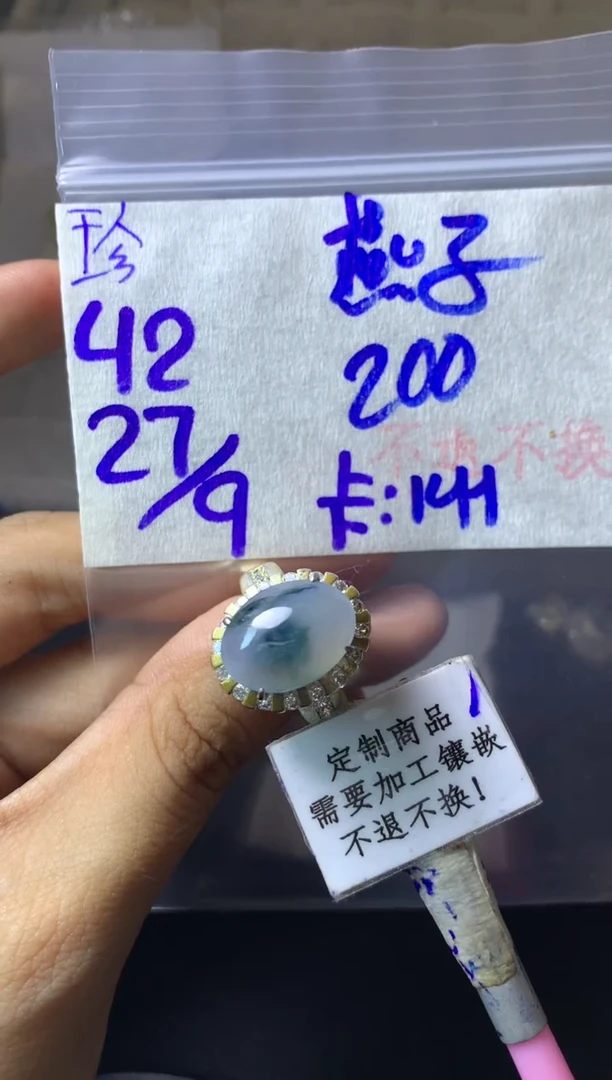 珍
42
27/9
燕子
200
不退不换
卡:141
定制商品
需要加工镶嵌
不退不换!